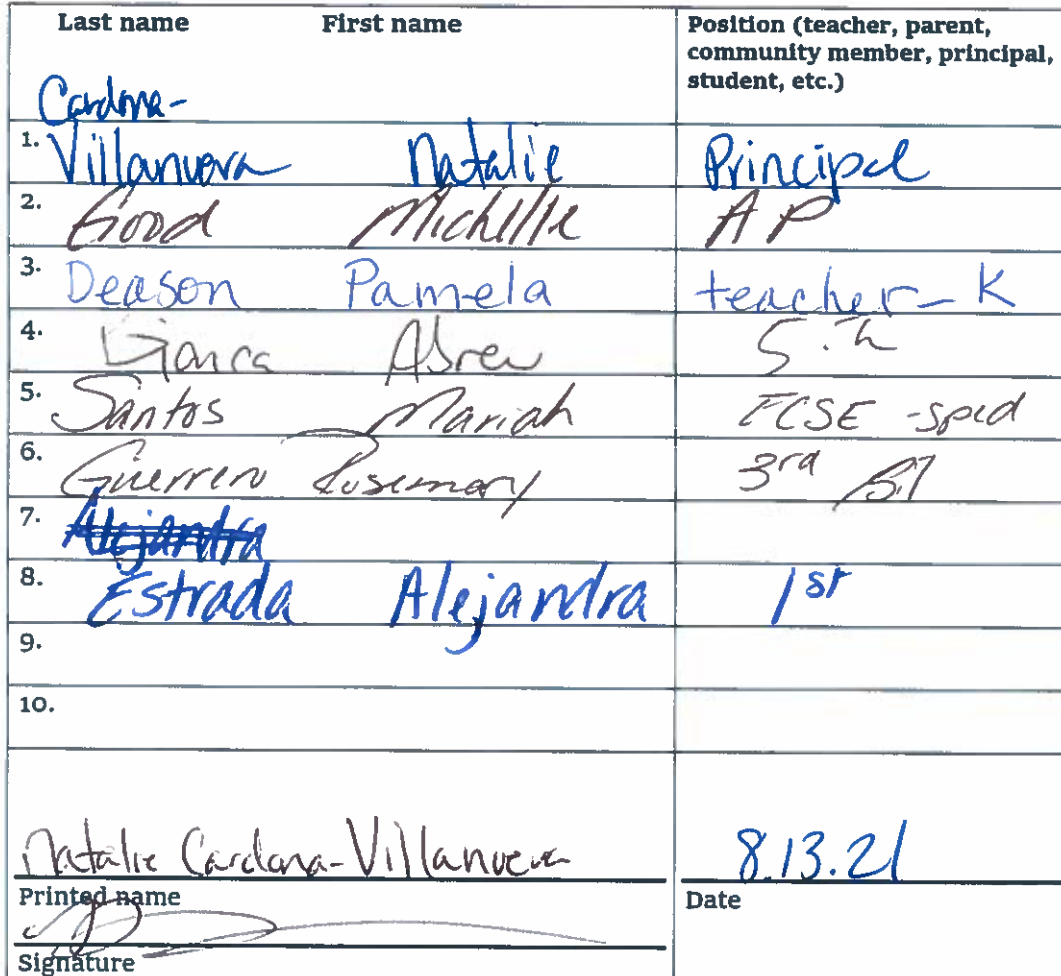 Last name First name Position (teacher, parent,
community member, principal,
student, etc.)
Cardona-
1. Villanueva Natalie Principal
2. Good Michelle AP
3. Deason Pamela teacher-K
4. Abreu 5th
5. Santos Mariah ECSE -sped
6. Guerrero Rosemary 3rd
7. Alejandra
8. Estrada Alejandra 1st
9.
10.
Natalie Cardona-Villanueva 8.13.21
Printed name Date
Signature